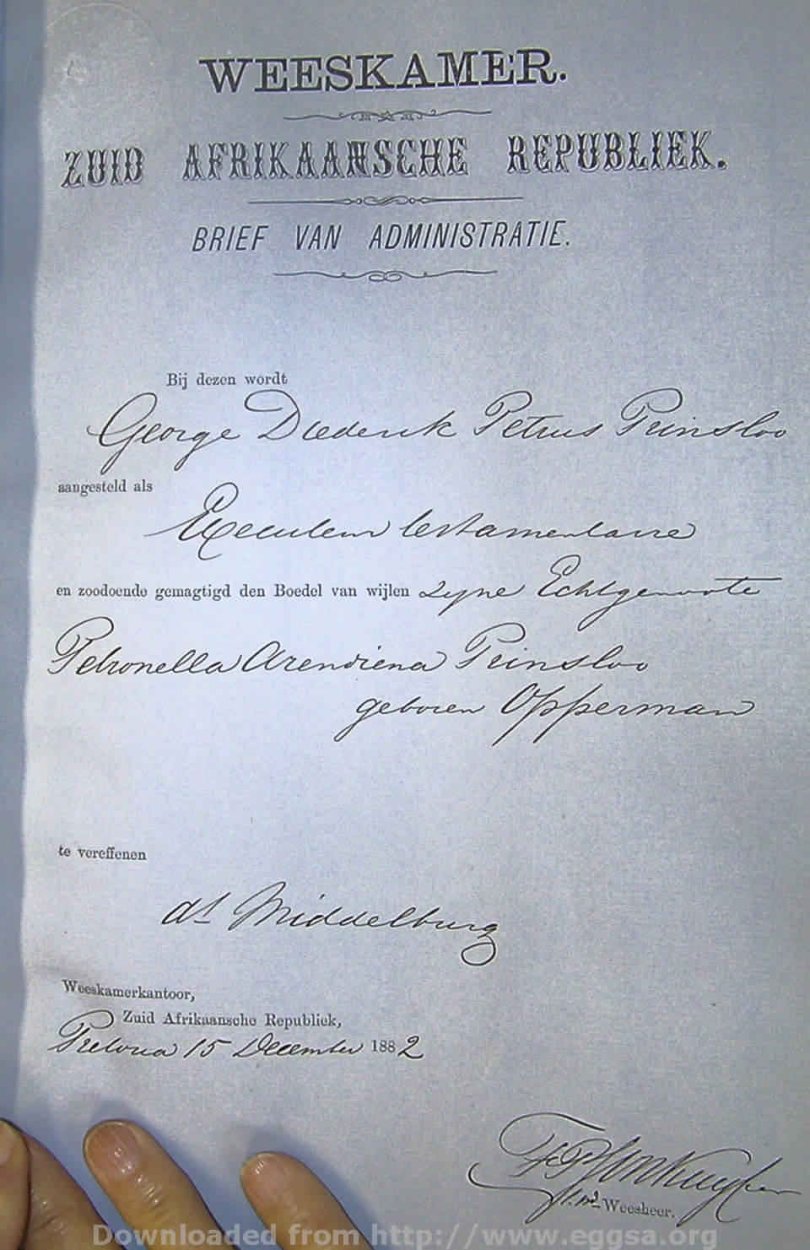 WEESKAMER.
ZUID AFRIKAANSCHE REPUBLIEK.
BRIEF VAN ADMINISTRATIE.
Bij dezen wordt
George Diederik Petrus Prinsloo
aangesteld als
Executeur testamentaire
en zoodoende gemagtigd den Boedel van wijlen Zyne Echtgenoote
Petronella Arendiena Prinsloo
geboren Opperman
te vereffenen
Middelburg
Weeskamerkantoor,
Zuid Afrikaansche Republiek,
Pretoria 15 December 1882
Weesheer.
Downloaded from http://www.eggsa.org